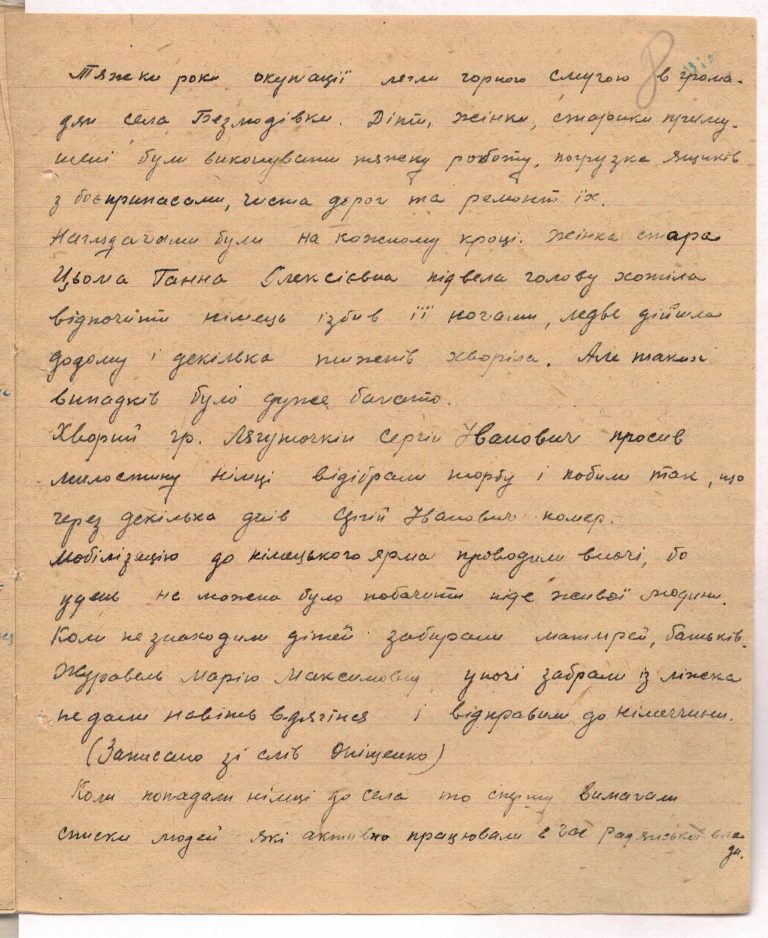 8
Тяжки роки окупації лягли чорною смугою в грома-
дян села Безлюдівки. Діти, жінки, старики приму-
шені були виконувати тяжку роботу, погрузка ящиків
з боєприпасами, чистка дорог та ремонт їх.
Наглядачами були на кожному кроці. Жінка стара
Цьома Ганна Олексієвна підвела голову хотіла
відпочити німець ізбив її ногами, ледве дійшла
додому і декілька тижнів хворіла. Але таких
випадків було дуже багато.
Хворий гр. Лягуточкін Сергій Іванович просив
милостину німці відібрали торбу і побили так, що
через декілька днів Сргій Іванович помер.
Мобілізацію до німецького ярма проводили вночі, бо
удень не можена було побачити ніде живої людини.
Коли не знаходили дітей забирали матирей, батьків.
Журавель Марію Максимовну уночі забрали із ліжка
не дали навіть вдягтися і відправили до Німеччини.
(Записано зі слів Оніщенко)
Коли попадали німці до села то спочатку вимагали
списки людей які активно працювали в час радянської вла-
ди.